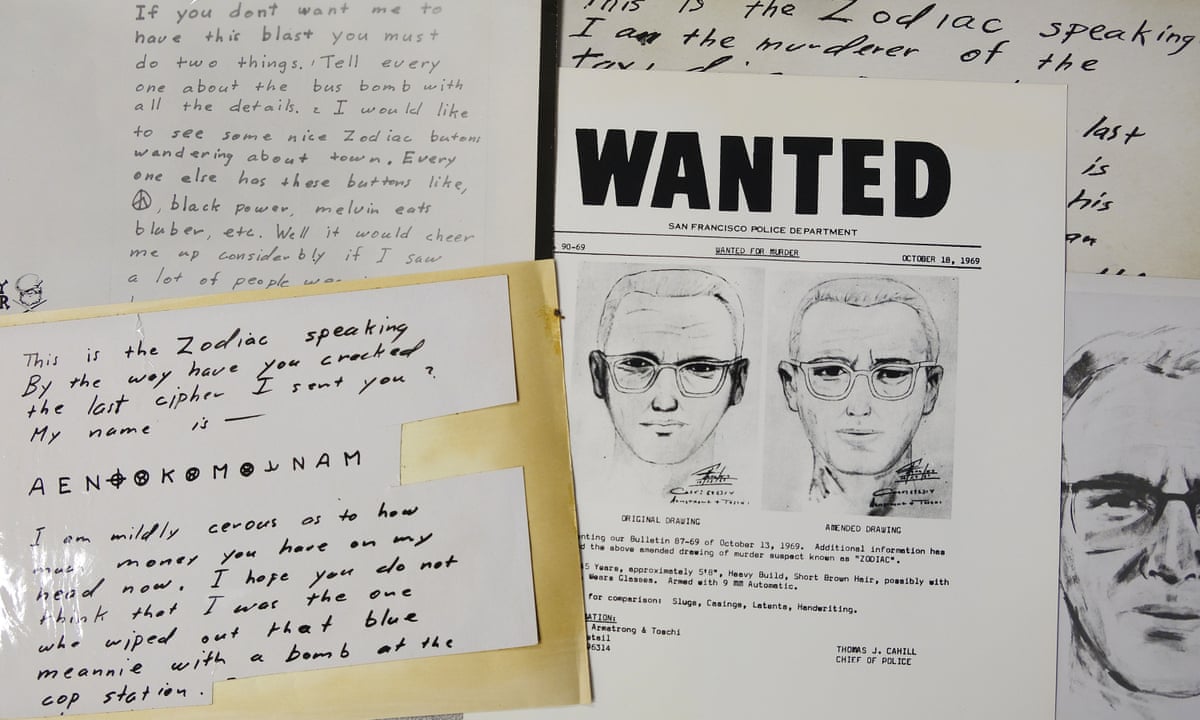 If you dont want me to
have this blast you must
do two things. 1 Tell every
one about the bus bomb with
all the details. 2 I would like
to see some nice Zodiac butons
wandering about town. Every
one else has these buttons like,
☮, black power, melvin eats
bluber, etc. Well it would cheer
me up considerbly if I saw
a lot of people
This is the Zodiac speaking
By the way have you cracked
the last cipher I sent you?
My name is —
AEN⌖⊗K⊗M⊗⅃NAM
I am mildly cerous as to how
much money you have on my
head now. I hope you do not
think that I was the one
who wiped out that blue
meannie with a bomb at the
cop station.
This is the Zodiac speaking
I am the murderer of the
last
is
his
an
WANTED
SAN FRANCISCO POLICE DEPARTMENT
90-69 WANTED FOR MURDER OCTOBER 18, 1969
ORIGINAL DRAWING AMENDED DRAWING
our Bulletin 87-69 of October 13, 1969. Additional information has
the above amended drawing of murder suspect known as "ZODIAC".
Years, approximately 5'8", Heavy Build, Short Brown Hair, possibly with
Wears Glasses. Armed with 9 MM Automatic.
for comparison: Slugs, Casings, Latents, Handwriting.
Armstrong & Toschi
THOMAS J. CAHILL
CHIEF OF POLICE